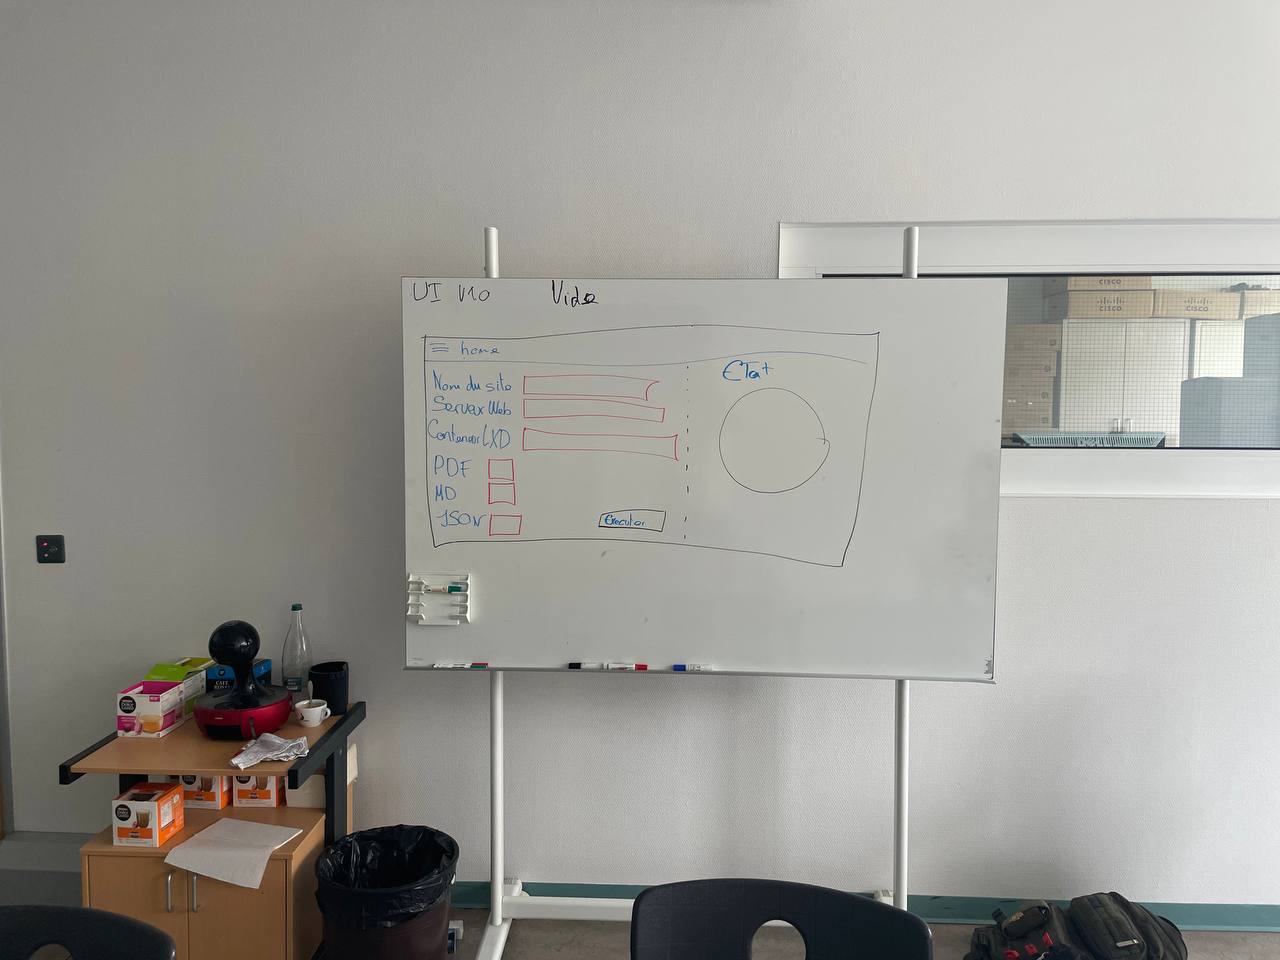 UI V1.0 Vide
≡ home
Nom du site
Serveur Web
Conteneur LXD
PDF
MD
JSON
Executer
ETat
CISCO
CISCO
CISCO